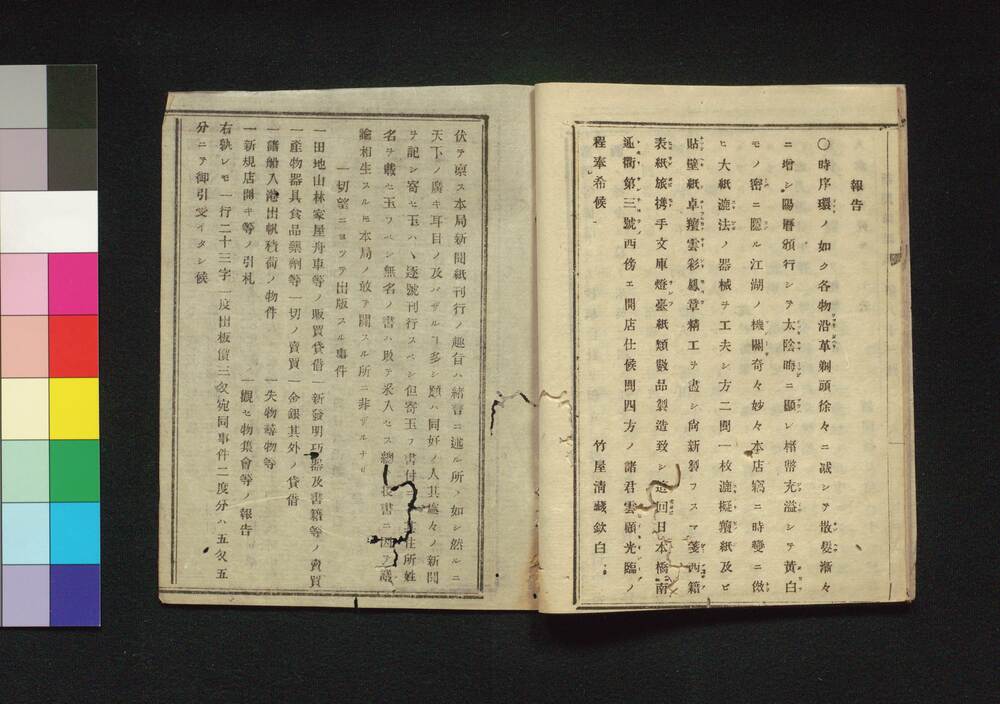 報告
〇時序環ノ如ク各物沿革剃頭徐々ニ減シテ散髮漸々
ニ增シ陽曆頒行シテ太陰晦ニ顯レ楮幣充溢シテ黃白
モノ密ニ隱ル江湖ノ機關奇々妙々本店竊ニ時變ニ傚
ヒ大紙漉法ノ器械ヲ工夫シ方二間一枚漉擬氈紙及ヒ
貼壁紙卓氈雲彩鳳章精工ヲ盡シ尙新製フスマ箋西籍
表紙旅携手文庫燈臺紙類數品製造致シ這回日本橋南
通衢第三號西傍ェ開店仕候間四方ノ諸君雲顧光臨ノ
程奉希候 竹屋淸藏欽白
伏テ禀ス本局新聞紙刊行ノ趣旨ハ緖言ニ述ル所ノ如シ然ルニ
天下ノ廣キ耳目ノ及バザルヿ多シ願ハ同好ノ人其處々ノ新聞
ヲ記シ寄セ玉ハヽ逐號刊行スベシ但寄玉フ書付ニ住所姓
名ヲ載セ玉フベシ無名ノ書ハ敢テ采入セス總テ投書ニ因テ議
論相生スル𪜈本局ノ敢テ關スル所ニ非ザルナリ
一切望ニヨツテ出版スル事件
一田地山林家屋舟車等ノ販買貸借 一新發明巧器及書籍等ノ賣買
一產物器具食品藥劑等一切ノ賣買 一金銀其外ノ貸借
一諸船入港出帆積荷ノ物件 一失物尋物等
一新規店開キ等ノ引札 一觀セ物集會等ノ報告
右孰レモ一行二十三字一度出板價三匁宛同事件二度分ハ五匁五
分ニテ御引受イタシ候